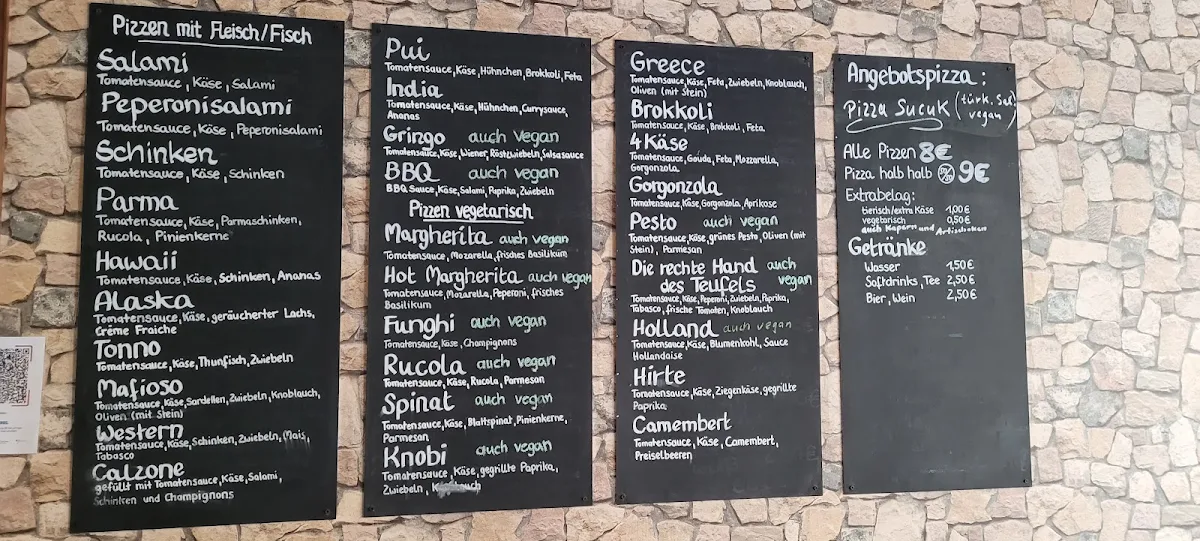 Pizzen mit Fleisch/Fisch
Salami
Tomatensauce, Käse, Salami
Peperonisalami
Tomatensauce, Käse, Peperonisalami
Schinken
Tomatensauce, Käse, Schinken
Parma
Tomatensauce, Käse, Parmaschinken,
Rucola, Pinienkerne
Hawaii
Tomatensauce, Käse, Schinken, Ananas
Alaska
Tomatensauce, Käse, geräucherter Lachs,
Crème Fraiche
Tonno
Tomatensauce, Käse, Thunfisch, Zwiebeln
Mafioso
Tomatensauce, Käse, Sardellen, Zwiebeln, Knoblauch,
Oliven (mit Stein)
Western
Tomatensauce, Käse, Schinken, Zwiebeln, Mais,
Tabasco
Calzone
gefüllt mit Tomatensauce, Käse, Salami,
Schinken und Champignons
Pui
Tomatensauce, Käse, Hühnchen, Brokkoli, Feta
India
Tomatensauce, Käse, Hühnchen, Currysauce,
Ananas
Gringo auch vegan
Tomatensauce, Käse, Wiener, Röstzwiebeln, Salsasauce
BBQ auch vegan
BBQ Sauce, Käse, Salami, Paprika, Zwiebeln
Pizzen vegetarisch
Margherita auch vegan
Tomatensauce, Mozarella, frisches Basilikum
Hot Margherita auch vegan
Tomatensauce, Mozarella, Peperoni, frisches
Basilikum
Funghi auch vegan
Tomatensauce, Käse, Champignons
Rucola auch vegan
Tomatensauce, Käse, Rucola, Parmesan
Spinat auch vegan
Tomatensauce, Käse, Blattspinat, Pinienkerne,
Parmesan
Knobi auch vegan
Tomatensauce, Käse, gegrillte Paprika,
Zwiebeln,
Greece
Tomatensauce, Käse, Feta, Zwiebeln, Knoblauch,
Oliven (mit Stein)
Brokkoli
Tomatensauce, Käse, Brokkoli, Feta
4 Käse
Tomatensauce, Gouda, Feta, Mozzarella,
Gorgonzola
Gorgonzola
Tomatensauce, Käse, Gorgonzola, Aprikose
Pesto auch vegan
Tomatensauce, Käse, grünes Pesto, Oliven (mit
Stein), Parmesan
Die rechte Hand auch
des Teufels vegan
Tomatensauce, Käse, Peperoni, Zwiebeln, Paprika,
Tabasco, frische Tomaten, Knoblauch
Holland auch vegan
Tomatensauce, Käse, Blumenkohl, Sauce
Hollandaise
Hirte
Tomatensauce, Käse, Ziegenkäse, gegrillte
Paprika
Camembert
Tomatensauce, Käse, Camembert,
Preiselbeeren
Angebotspizza:
Pizza Sucuk (türk. Sal.)
vegan
Alle Pizzen 8€
Pizza halb halb 9€
Extrabelag:
tierisch/extra Käse 1,00€
vegetarisch 0,50€
auch Kapern und Artischoken
Getränke
Wasser 1,50€
Softdrinks, Tee 2,50€
Bier, Wein 2,50€